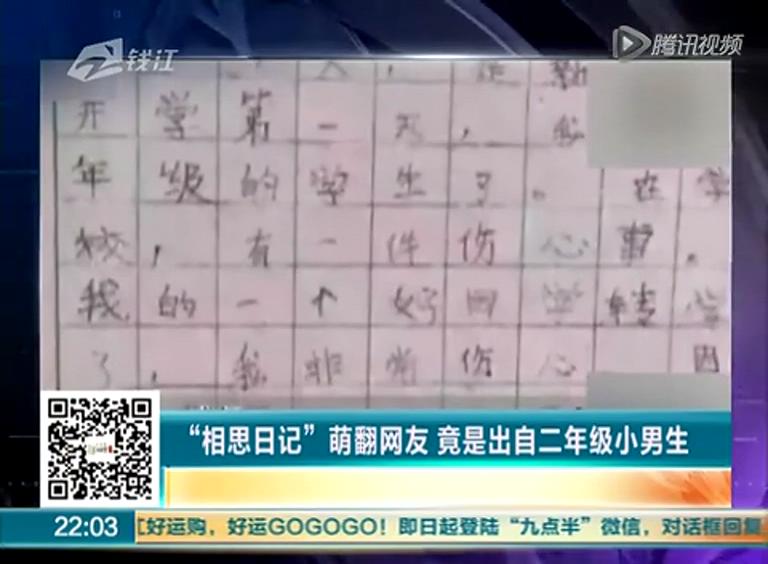 钱江
腾讯视频
开学第一天，我
年级的学生了。在学
校，有一件伤心事。
我的一个好同学转学
了，我非常伤心 因
“相思日记”萌翻网友 竟是出自二年级小男生
22:03
好运购，好运GOGOGO！即日起登陆“九点半”微信，对话框回复